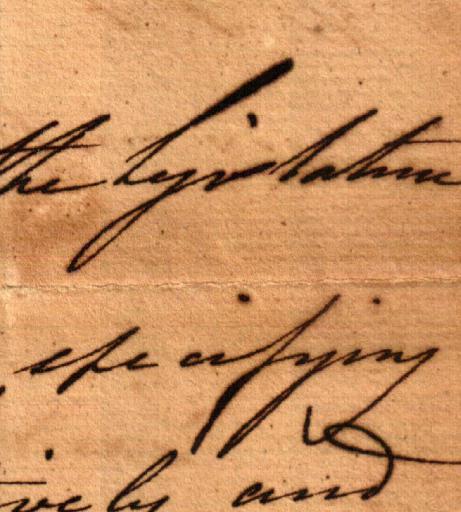 the Legislature
, specifying
ively and